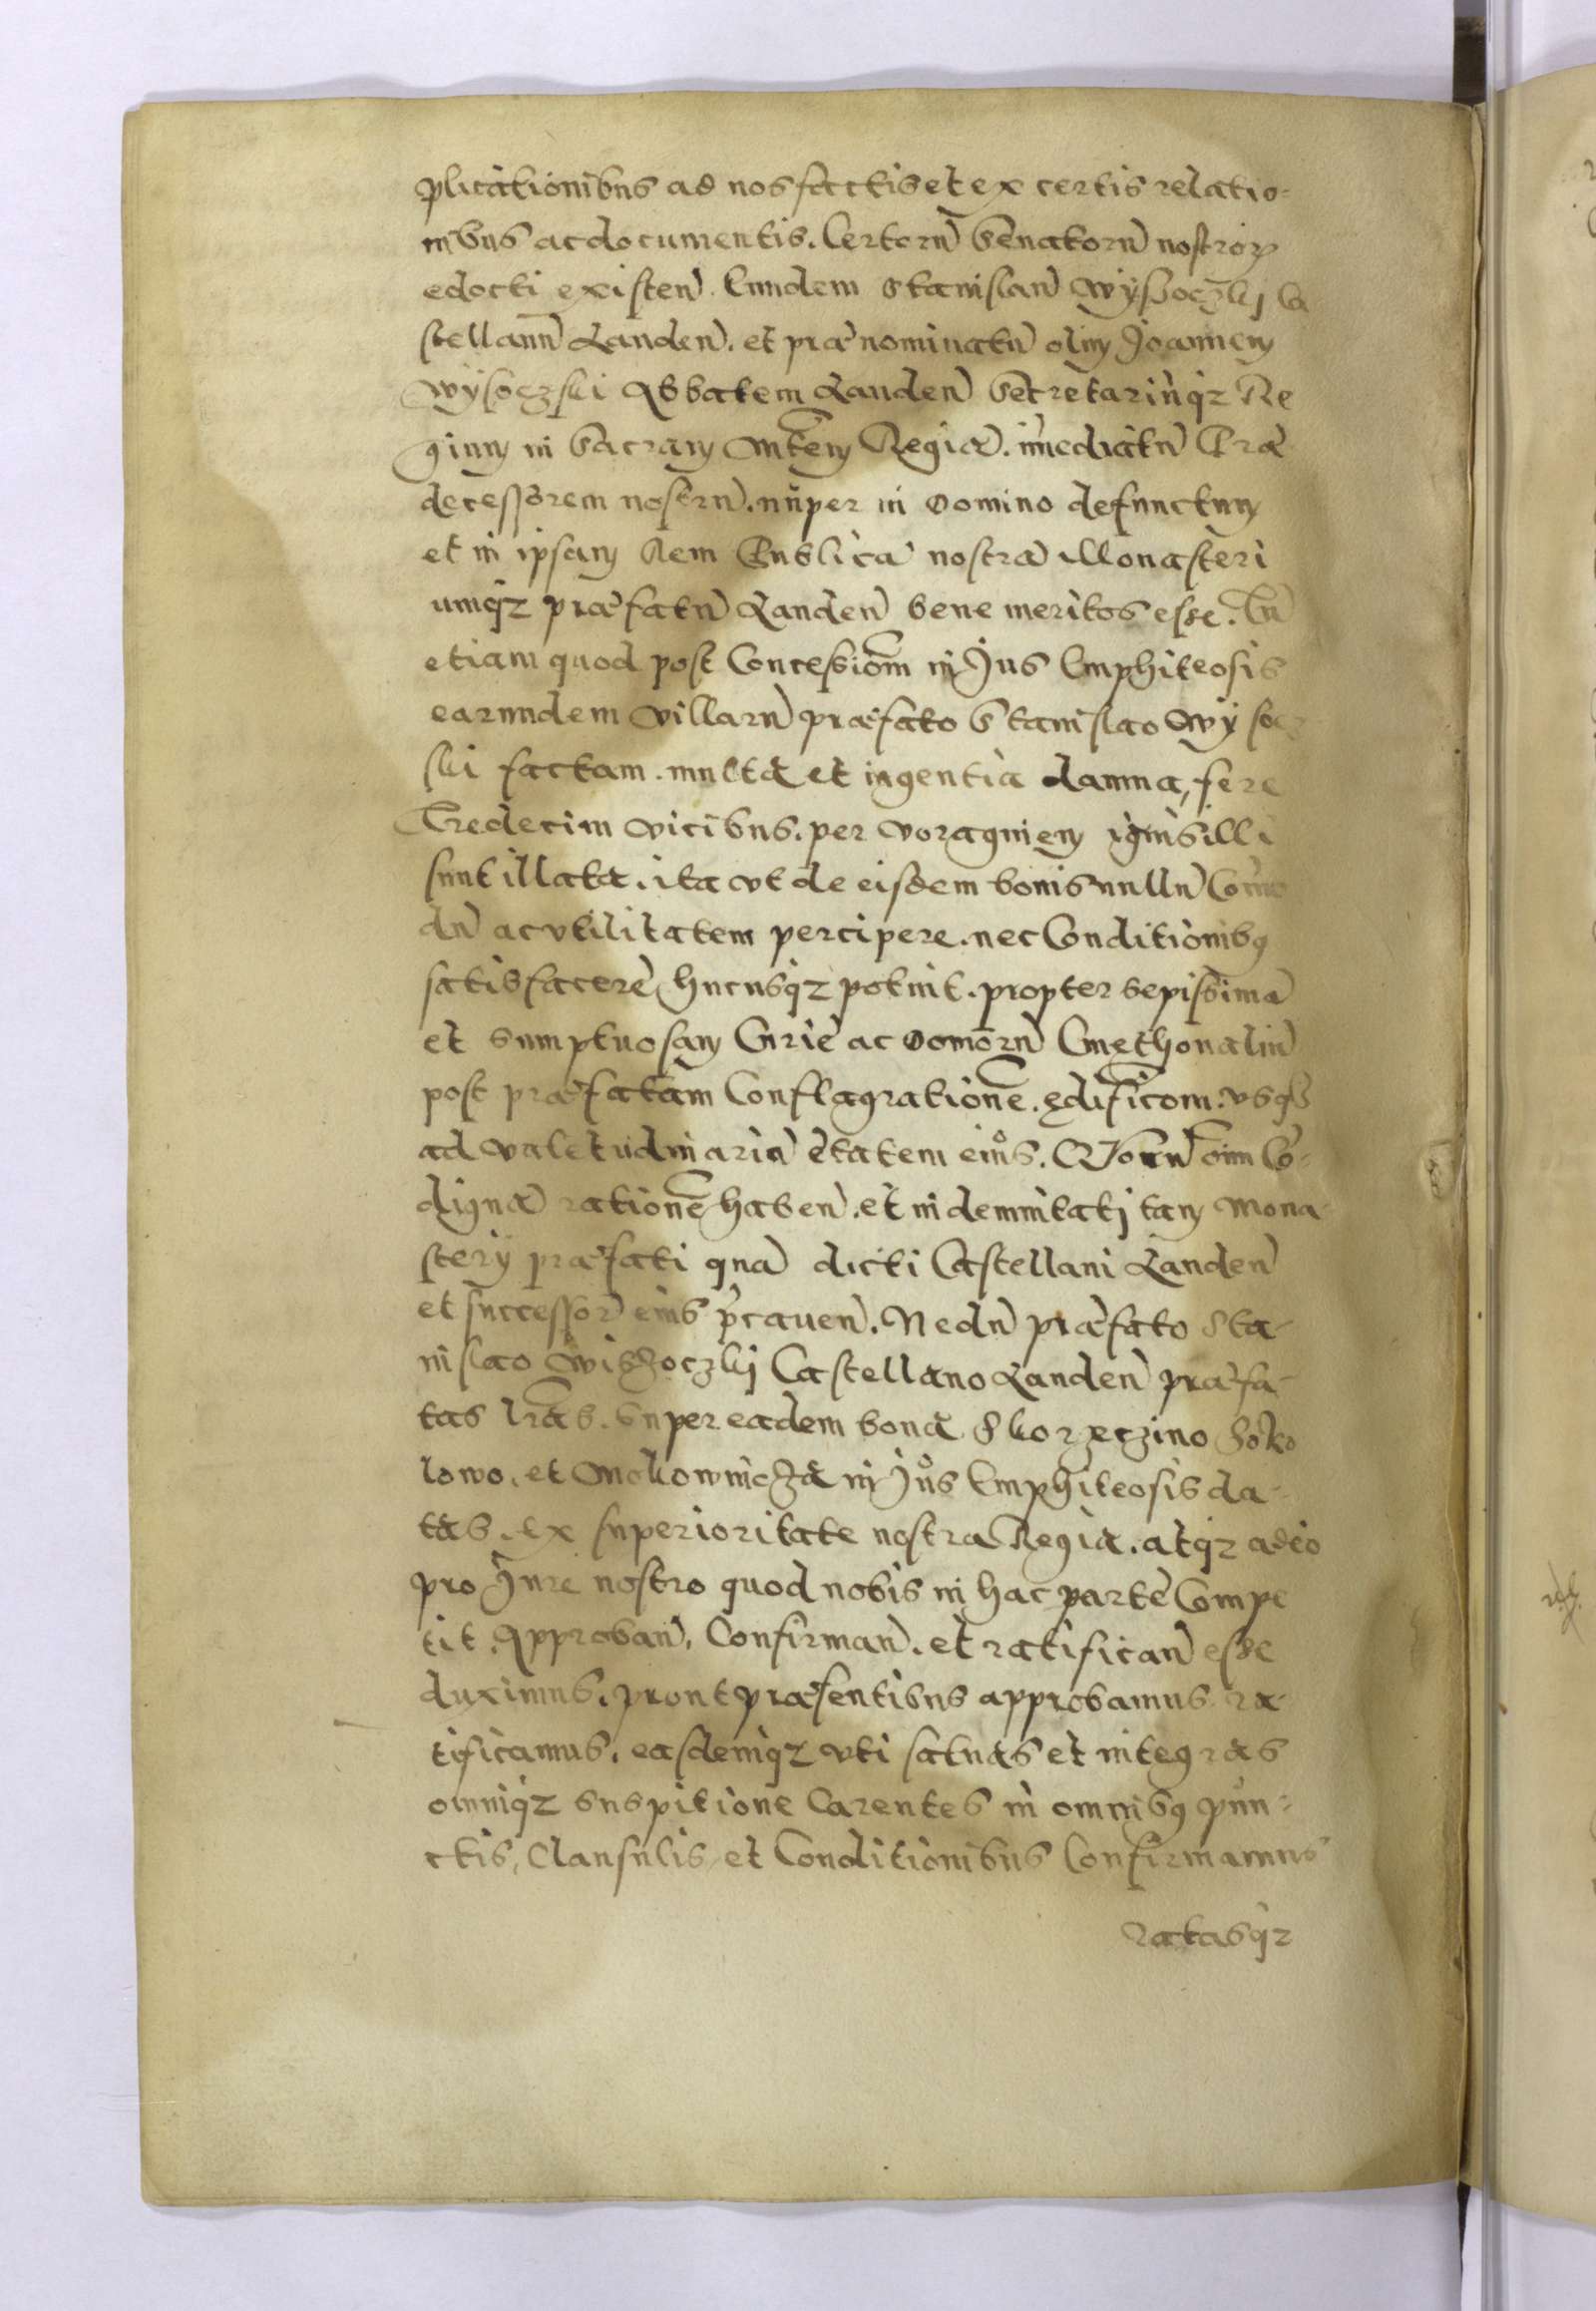 plicationibus ad nos factis et ex certis relatio-
nibus ac documentis. Certorũ Senatorũ nostroꝝ
edocti existeñ. Eundem Stanislaũ Wÿsoczkj Ca
stellanũ Landeñ. et prænominatũ olim Joannem
Wÿsoczski Abbatem Landeñ Secretariũq3 Re
gium in Sacram Mtẽm Regiã. im̃ediatũ Præ
decessorem nostrũ. nuper in Domino defunctum
et in ipsam Rem Publicã nostrã Monasteri
umq3 præfatũ Landeñ bene meritos esse. Tũ
etiam quod post Concessiom̃ in Jus Emphiteosis
earundem villarũ præfato Stanislao Wÿsocz
ski factam. multa et ingentia damna, fere
Tredecim vicibus. per voraginem ignis illi
sunt illata. ita vt de eisdem bonis nullũ Com̃o
dũ ac vtilitatem percipere. nec Conditionibꝫ
satisfacere hucusq3 potuit. propter sepissimã
et sumptuosam Curiẽ ac Domorũ Cmethonaliũ
post præfatam Conflagrationẽ. ędificom̃. vsq3
ad valetudinariã ętatem eius. Quorũ oim̃ Cõ-
dignã rationẽ habeñ. et indemnitatj tam Mona
sterÿ præfati quã dicti Castellani Landeñ
et successorũ eius p̃caueñ. Nedũ præfato Sta-
nislao Wiszoczkj Castellano Landeñ præfa-
tas lr̃as. super eadem bona Skorzeczino Soko
lowo. et Mokownicza in Jus Emphiteosis da-
tas. ex superioritate nostra Regia. atq3 adeo
pro Jure nostro quod nobis in hac parte Compe
tit. Approbañ, Confirmañ. et ratificañ esse
duximus. prout præsentibus approbamus ra-
tificamus. easdemq3 vti saluas et integras
omniq3 suspitione Carentes in omnibꝫ pun-
ctis, Clausulis, et Conditionibus Confirmamus
Ratasq3